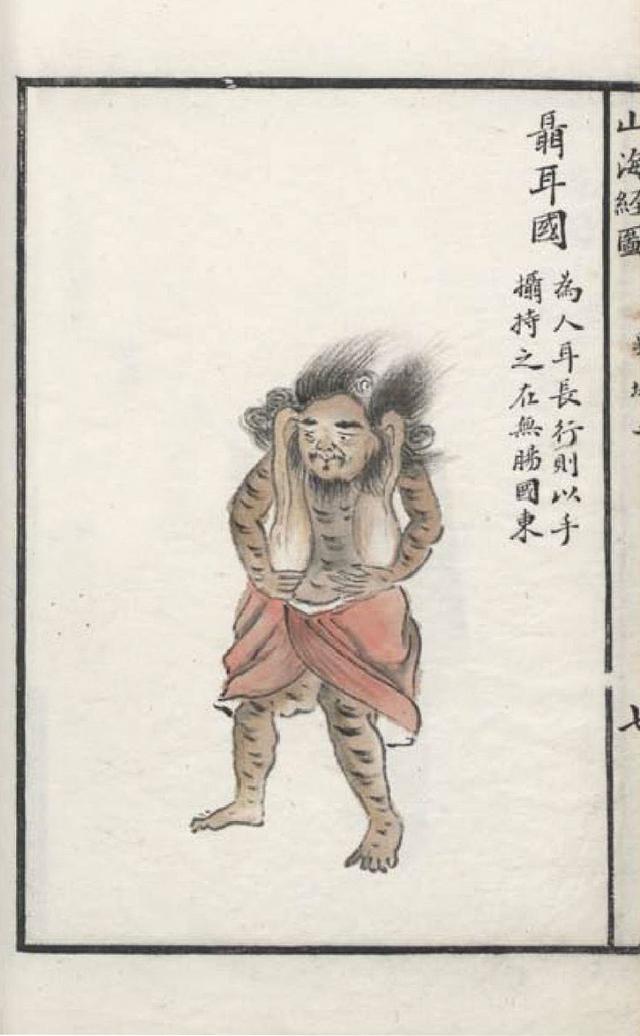 山海經圖
聶耳國
為人耳長行則以手
攝持之在無腸國東